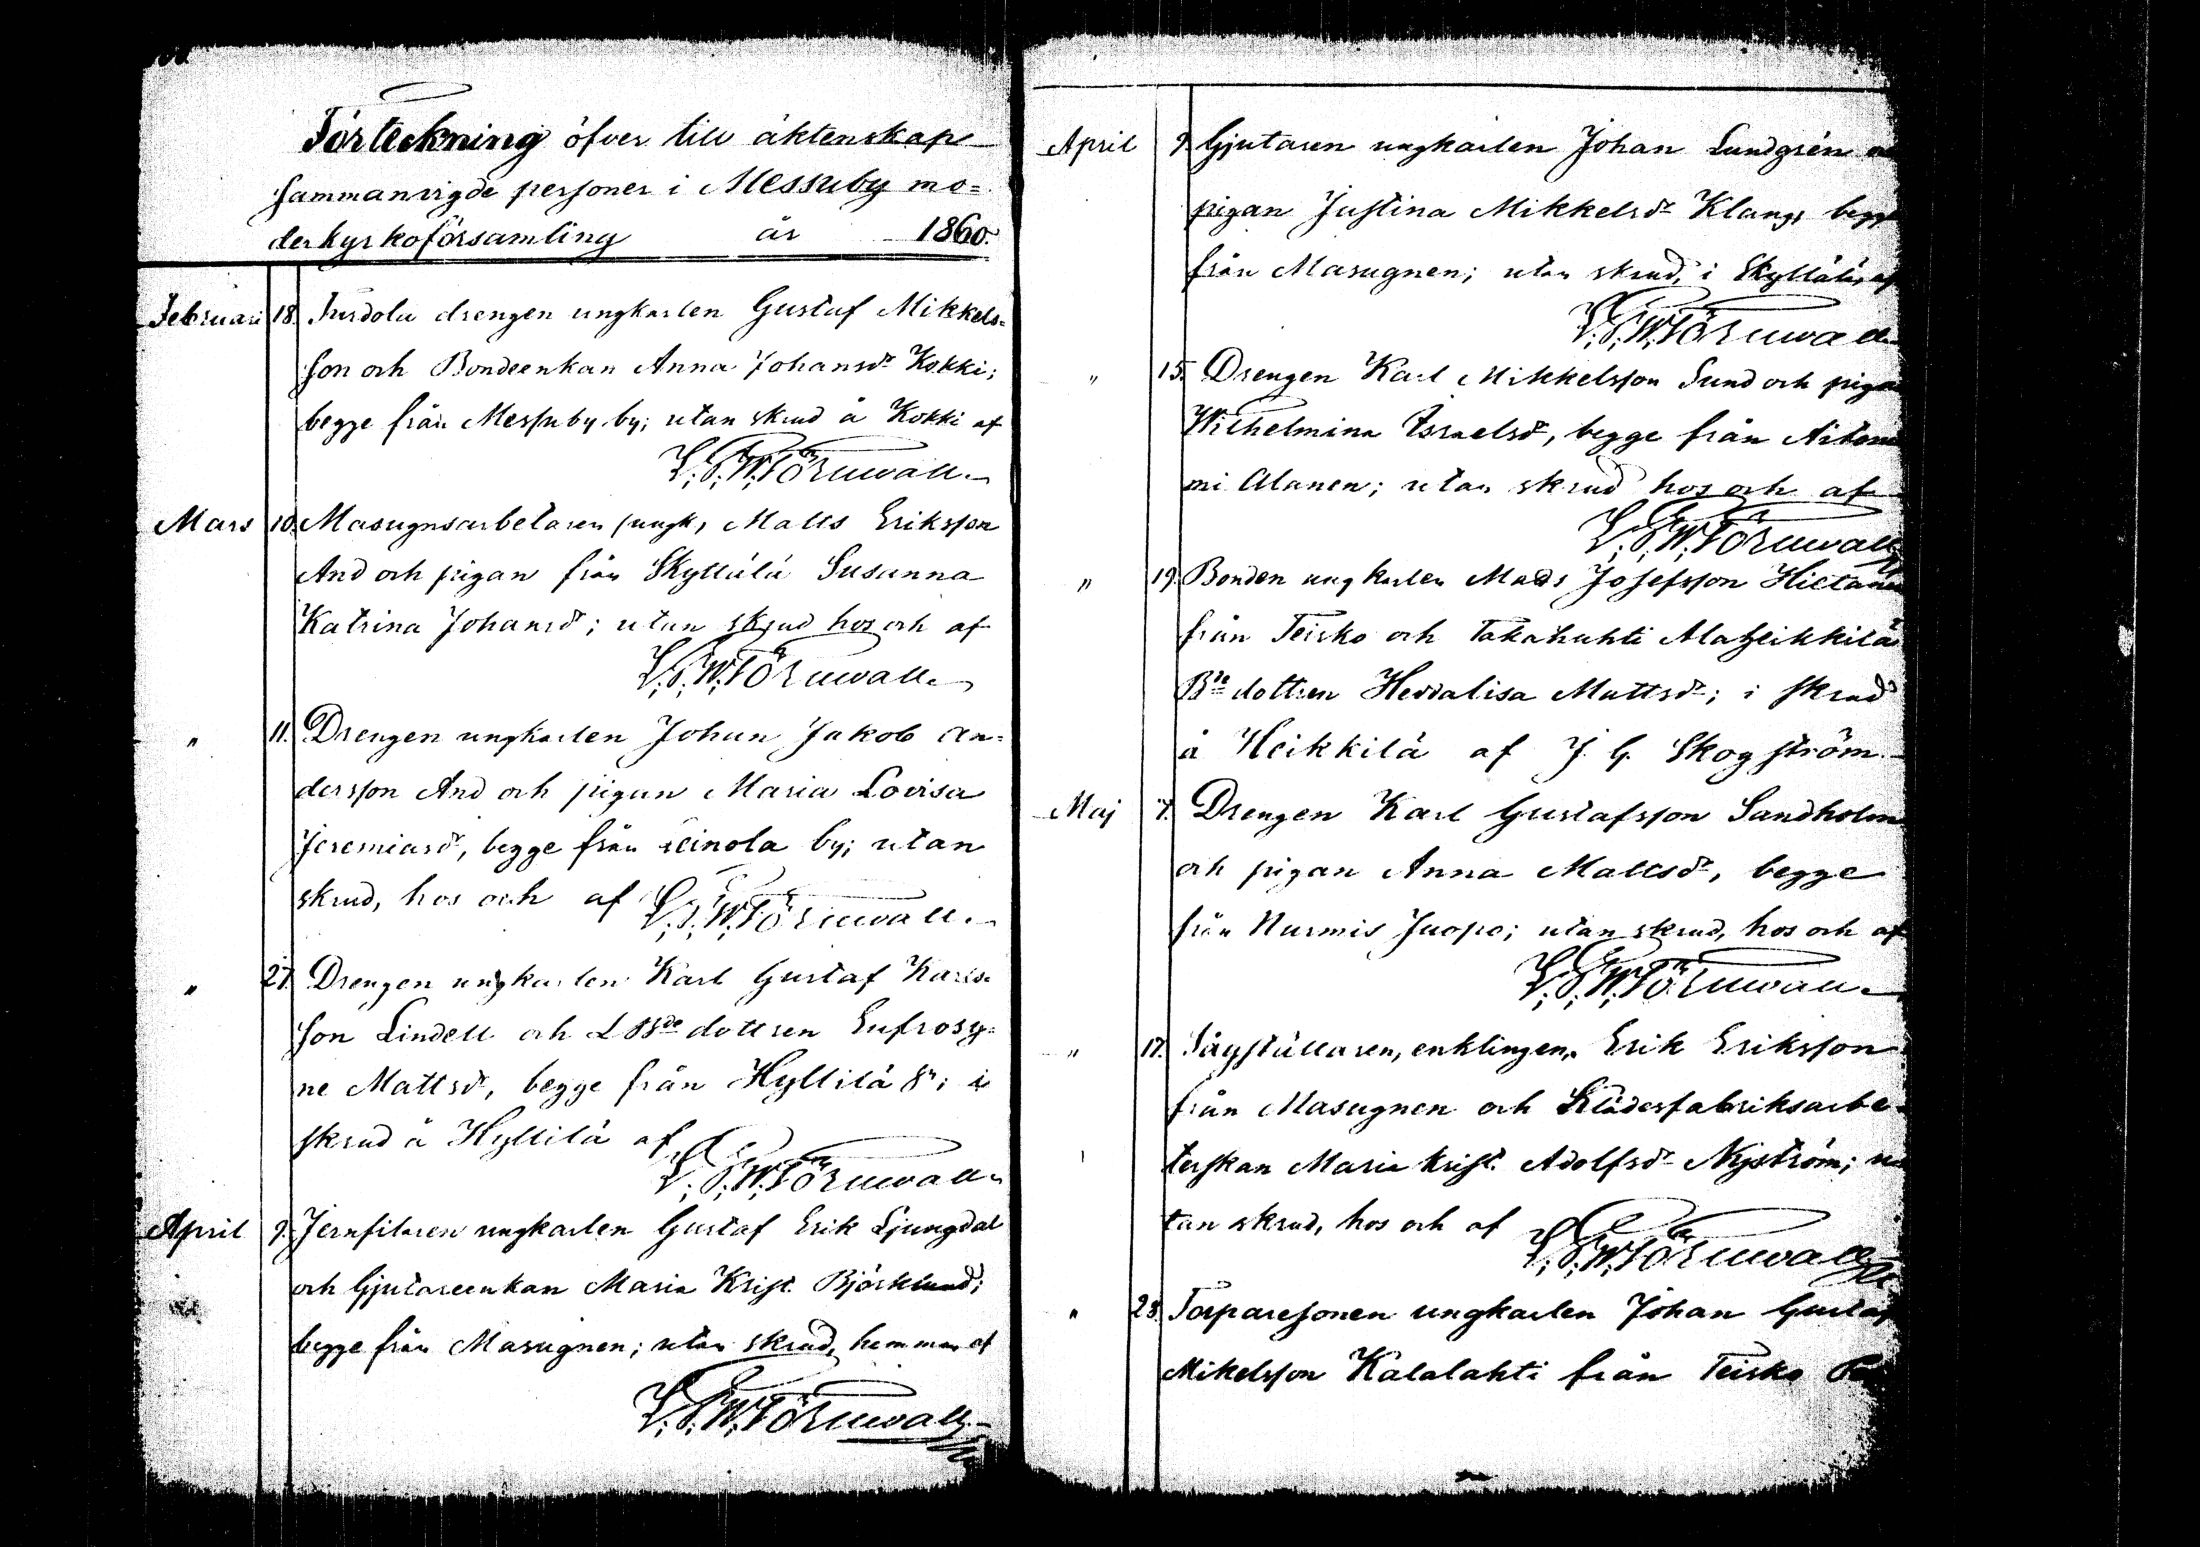 Förteckning öfver till äktenskap
sammanvigde personer i Messuby mo=
derkyrkoförsamling år 1860.
Februari 18. drengen ungkarlen Gustaf Mikkels=
son och Bondeenkan Anna Johansdr Kokki;
begge från Messuby by; utan skrud å Kokki af
V.S.W.Törnwall.
Mars 10. Masugnsarbetaren, ungk, Matts Eriksson
And och pigan från Skyttälä Susanna
Katrina Johansdr; utan skrud hos och af
V.S.W.Törnwall.
" 11. Drengen ungkarlen Johan Jakob An=
dersson And och pigan Maria Lovisa
Jeremiasdr, begge från Leinola by; utan
skrud, hos och af V.S.W.Törnwall.
" 27. Drengen ungkarlen Karl Gustaf Karls=
son Lindell och LBde dottren Eufrosy=
ne Mattsdr, begge från Hyllilä; i
skrud å Hyllilä af
V.S.W.Törnwall.
April 9. Jernfilaren ungkarlen Gustaf Erik Ljungdal
och Gjutareenkan Maria Krist. Björklund;
begge från Masugnen; utan skrud, hemma af
V.S.W.Törnwall.
April 9. Gjutaren ungkarlen Johan Lundgrén
pigan Justina Mikkelsdr Klang, begge
från Masugnen; utan skrud, i Skyttälä, af
V.S.W.Törnwall.
" 15. Drengen Karl Mikkelsson Sund och pigan
Wilhelmina Israelsdr, begge från Aitonie
mi Alanen; utan skrud hos och af
V.S.W.Törnwall
" 19. Bonden ungkarlen Mads Josefsson Hietanen
från Teisko och Takahuhti AlaHeikkilä
Bde dottren Hedda Lisa Mattsdr; i skrud
å Heikkilä af J. G. Skogström.
Maj 7. Drengen Karl Gustafsson Sandholm
och pigan Anna Mattsdr, begge
från Nurmis Juopo; utan skrud, hos och af
V.S.W.Törnwall.
" 17. Sågställaren, enklingen, Erik Eriksson
från Masugnen och Klädesfabriksarbe=
terskan Maria Krist. Adolfsdr Nyström; u
tan skrud, hos och af V.S.W.Törnwall
" 28. Torparesonen ungkarlen Johan Gustaf
Mikelsson Kalalahti från Teisko